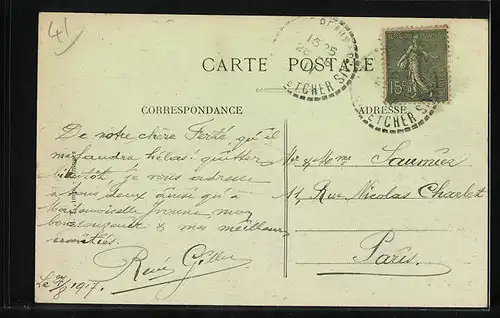 41
CARTE POSTALE
15c
ETCHER
ETCHER
CORRESPONDANCE
ADRESSE
De notre chère Ferté qu'il
me faudra hélas quitter
bientôt je vous adresse
à tous deux ainsi qu'à
Mademoiselle Yvonne, mon
bon souvenir & mes meilleures
amitiés.
René
Le 1917.
Mr & Mme Saunier
11, Rue Nicolas Charlet
Paris.